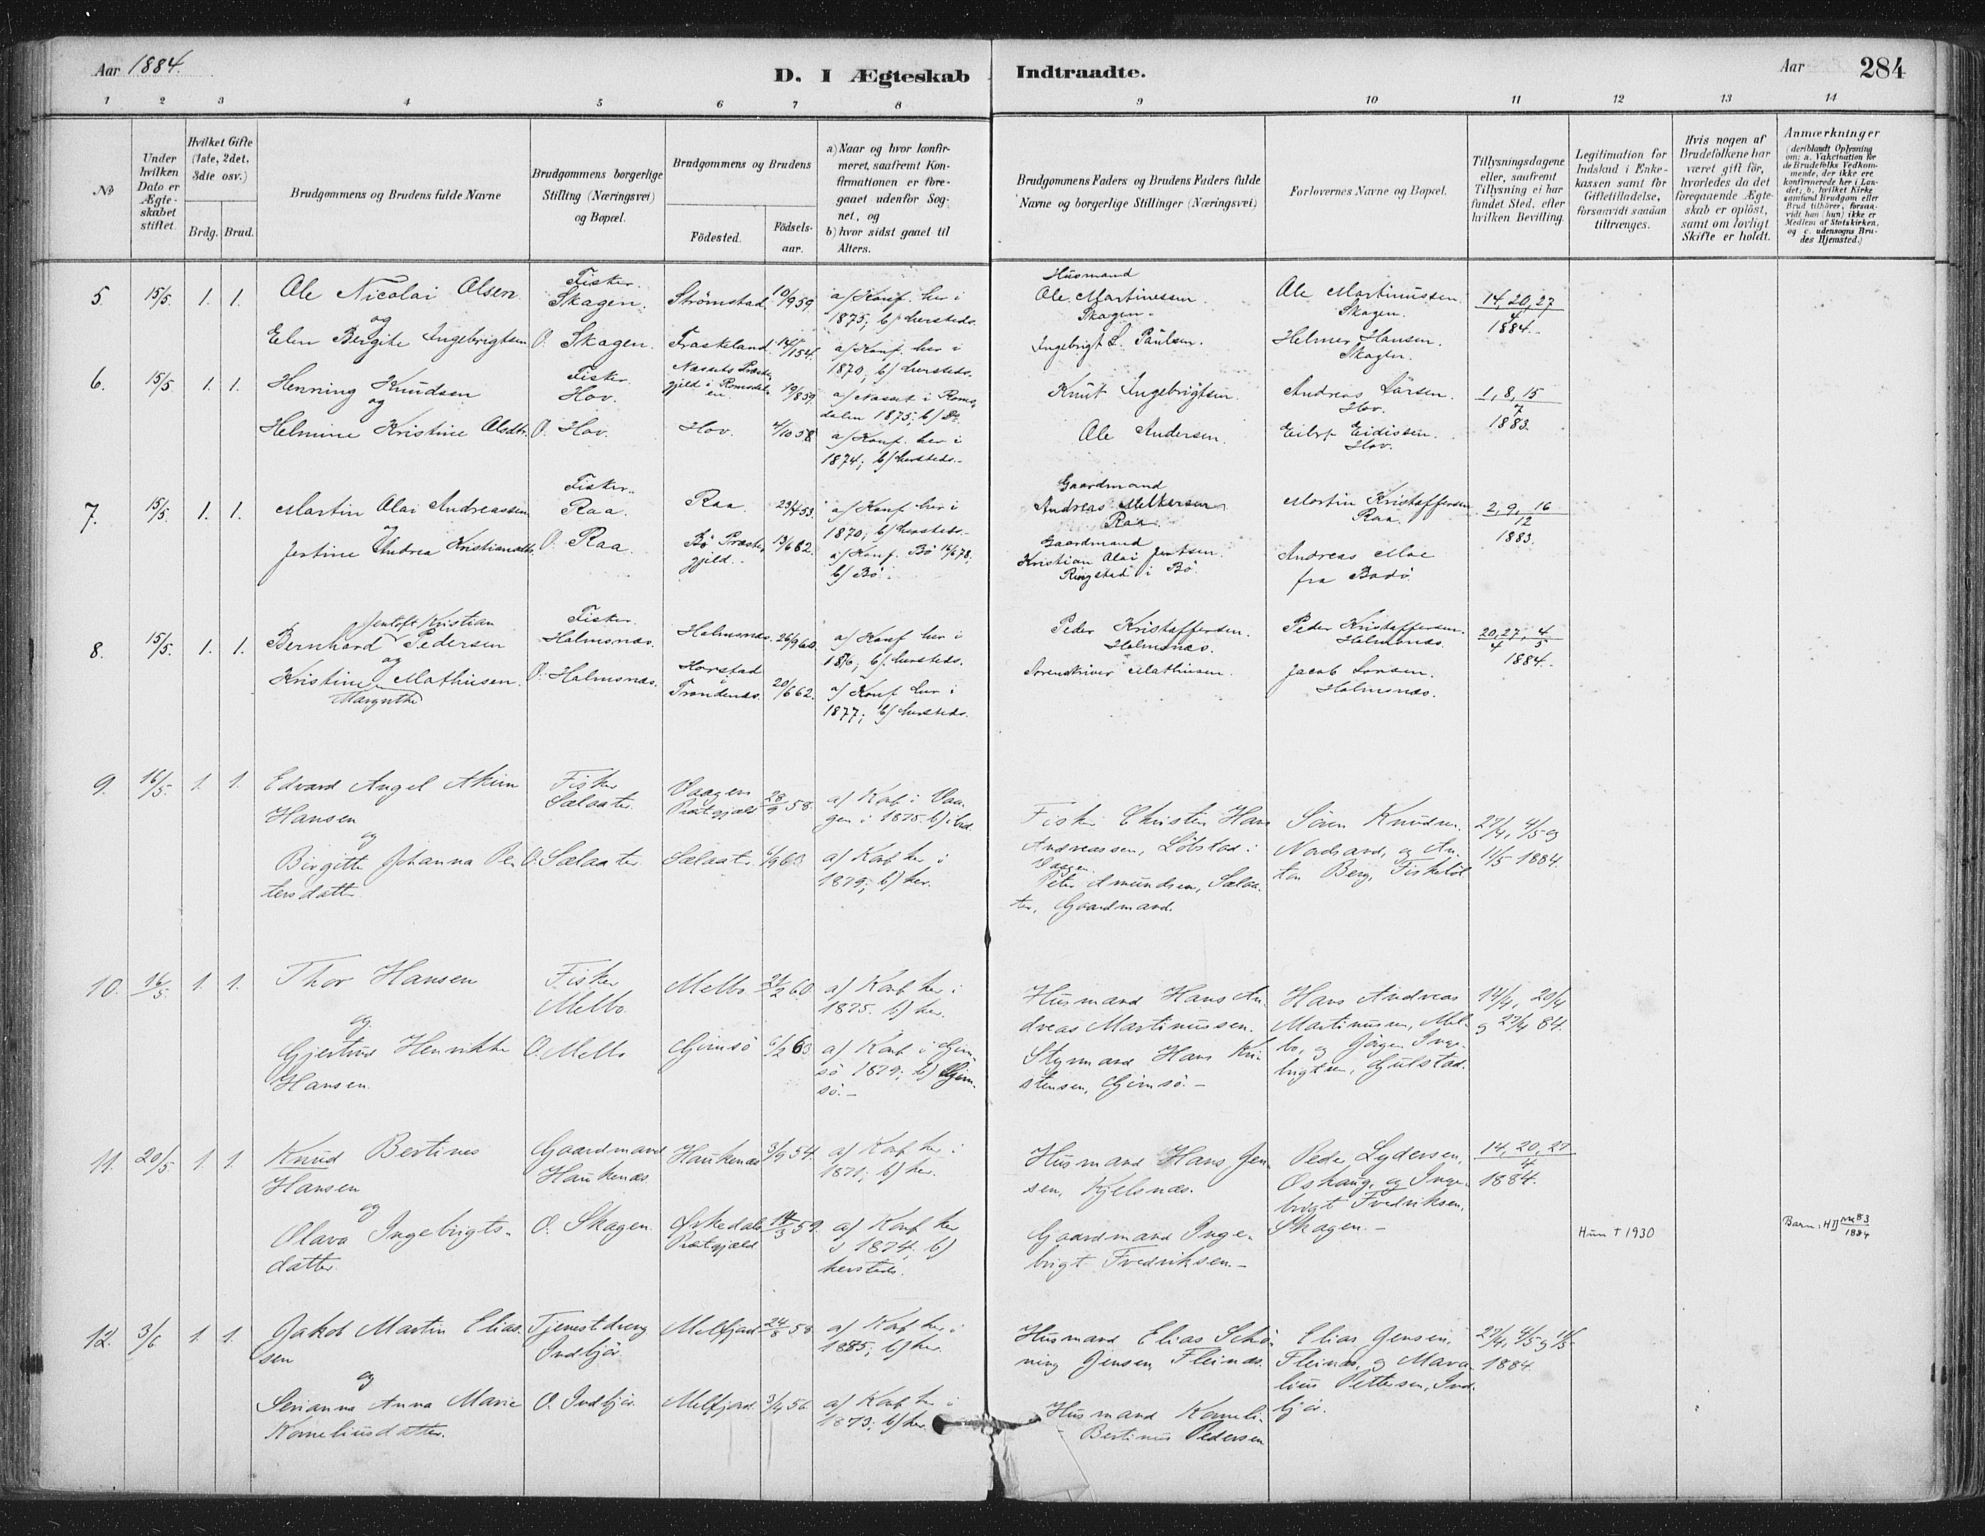 Aar 1884.
D. I Ægteskab Indtraadte.
Aar 284
1 2 3 4 5 6 7 8 9 10 11 12 13 14
No
Under hvilken Dato er Ægteskabet stiftet.
Hvilket Gifte (1ste, 2det, 3die osv.)
Brdg. Brud.
Brudgommens og Brudens fulde Navne
Brudgommens borgerlige Stilling (Næringsvei) og Bopæl.
Brudgommens og Brudens
Födested. Födselsaar.
a) Naar og hvor konfirmeret, saafremt Konfirmationen er foregaaet udenfor Sognet, og
b) hvor sidst gaaet til Alters.
Brudgommens Faders og Brudens Faders fulde Navne og borgerlige Stillinger (Næringsvei)
Forlovernes Navne og Bopæl.
Tillysningsdagene eller, saafremt Tillysning ei har fundet Sted, efter hvilken Bevilling.
Legitimation for Indskud i Enkekassen samt for Giftetilladelse, forsaavidt saadan tiltrænges.
Hvis nogen af Brudefolkene har været gift för, hvorledes da det foregaaende Ægteskab er oplöst, samt om lovligt Skifte er holdt.
Anmærkninger (deriblandt Oplysning om: a. Vakcination for de Brudefolks Vedkommende, der ikke ere konfirmerede her i Landet; b. hvilket Kirkesamfund Brudgom eller Brud tilhörer, forsaavidt han (hun) ikke er Medlem af Statskirken, og c. udensogns Brudes Hjemsted.)
5 15/5. 1. 1. Ole Nicolai Olsen Fisker. Skagen. Strømstad. 10/9 59 a/ Konf. her i 1875; b/ hersteds. Husmand Ole Martinessen Skagen. Ole Martinussen Skagen. 14, 20, 27/4 1884.
og
Elen Bergite Ingebrigtsen O. Skagen. Fraskeland a/ Konf. her i 1870; b/ hersteds. Ingebrigt L. Paulsen. Helmer Hansen. Skagen.
6. 15/5 1. 1. Henning Knudsen Fisker. Hov. Nassets Præstegjeld i Romsdalen. 19/8 59. a/ Nasset i Romsdalen 1875; b/ Do Knut Ingebrigtsen Andreas Larsen. Hov. 1, 8, 15/7 1883.
og
Helmine Kristine Olsdtr. O. Hov. Hov. 4/10 58. a/ Konf. her i 1874; b/ hersteds. Ole Andersen. Eilert Eidissen. Hov.
7. 15/5. 1. 1. Martin Olai Andreassen Fisker. Raa. Raa. 23/4 53. a/ Konf. her i 1870; b/ hersteds. Gaardmand Andreas Melkersen Raa. Martin Kristoffersen Raa. 2, 9, 16/12 1883.
og
Jertine Andrea Kristiansdtr. O. Raa. Bö Præstegjeld. 13/6 62. a/ Konf. Bö 14/6 78, b/ Bö. Gaardmand Kristian Olai Jentsen. Ringstad i Bö. Andreas Moe fra Bodö.
8. 15/5. 1. 1. Bernhard Jentoft Kristian Pedersen Fisker. Holmsnæs. Holmsnæs. 26/9 60. a/ Konf her i b/ hersteds. Peder Kristoffersen. Holmsnæs. Peder Kristoffersen. Holmsnæs. 20, 27/4, 4/5 1884.
og
Kristine Margrethe Mathisen. O. Holmsnæs. Trondenæs. 20/6 62. a/ Konf her i 1877; b/ hersteds. Sorenskriver Mathiesen. Jacob Larsen. Holmsnæs.
9. 16/5. 1. 1. Edvard Angel Hansen Fisker Sælaater. Vaagen Præstgjæld 28/9 58. a/ Konf i Vaagen i 1875. Fisker Christen Hans Andreassen, Löbstad i Vaagen. Sören Knudsen. Nordsand, og Anton Berg, Fiskeböl 27/4, 4/5 og 11/5 1884.
og
Birgitte Johanna Pettersdatter O. Sælaater Sælaater 6/9 60. a/ Konf her i 1879; b/ her. Peter Amundsen, Sælaater, Gaardmand.
10. 16/5 1. 1. Thor Hansen Fisker Melbo. Melbo 21/2 60. a/ Konf. her i 1875. b/ her. Husmand Hans Andreas Martinussen. Hans Andreas Martinussen, Melbo, og Jörgen Ingebrigtsen, Gulstad. 14/4, 20/4 og 27/4 84.
og
Gjertine Henrikke Hansen O. Melbo Gimsö 6/2 63. a/ Konf i Gimsö 1879; b/ Gimsö.- Styrmand Hans Kristensen, Gimsö.-
11. 20/5 1. 1. Knud Bertines Hansen Gaardmand Haukenæs. Haukenæs 3/9 54. a/ Konf her i 1871, b/ her. Husmand Hans Jensen, Kjelsnæs. Peder Lydersen, Oshaug, og Ingebrigt Fredriksen, Skagen.- 14, 20, 27/4 1884.
og
Olava Ingebrigtsdatter. O. Skagen. Ørkedals Præstgjæld 14/3 59. a/ Konf her i 1874; b/ hersteds. Gaardmand Ingebrigt Fredriksen.- Hun † 1930
12. 3/6 1. 1. Jakob Martin Eliassen Tjenestdreng Indbjör. Melfjord 24/8 58. a/ Konf her i b/ her. Husmand Elias Schöning Jensen, Fleinæs. Elias Jensen, Fleinæs, og Mavalius Pettersen, Indbjör. 27/4, 4/5 og 11/5 1884.
og
Serianna Anna Marie Korneliusdatter. O. Indbjör. Melfjord 3/4 56. a/ Konf her i 1873; b/ her. Husmand Korneli- Bertinus Pedersen